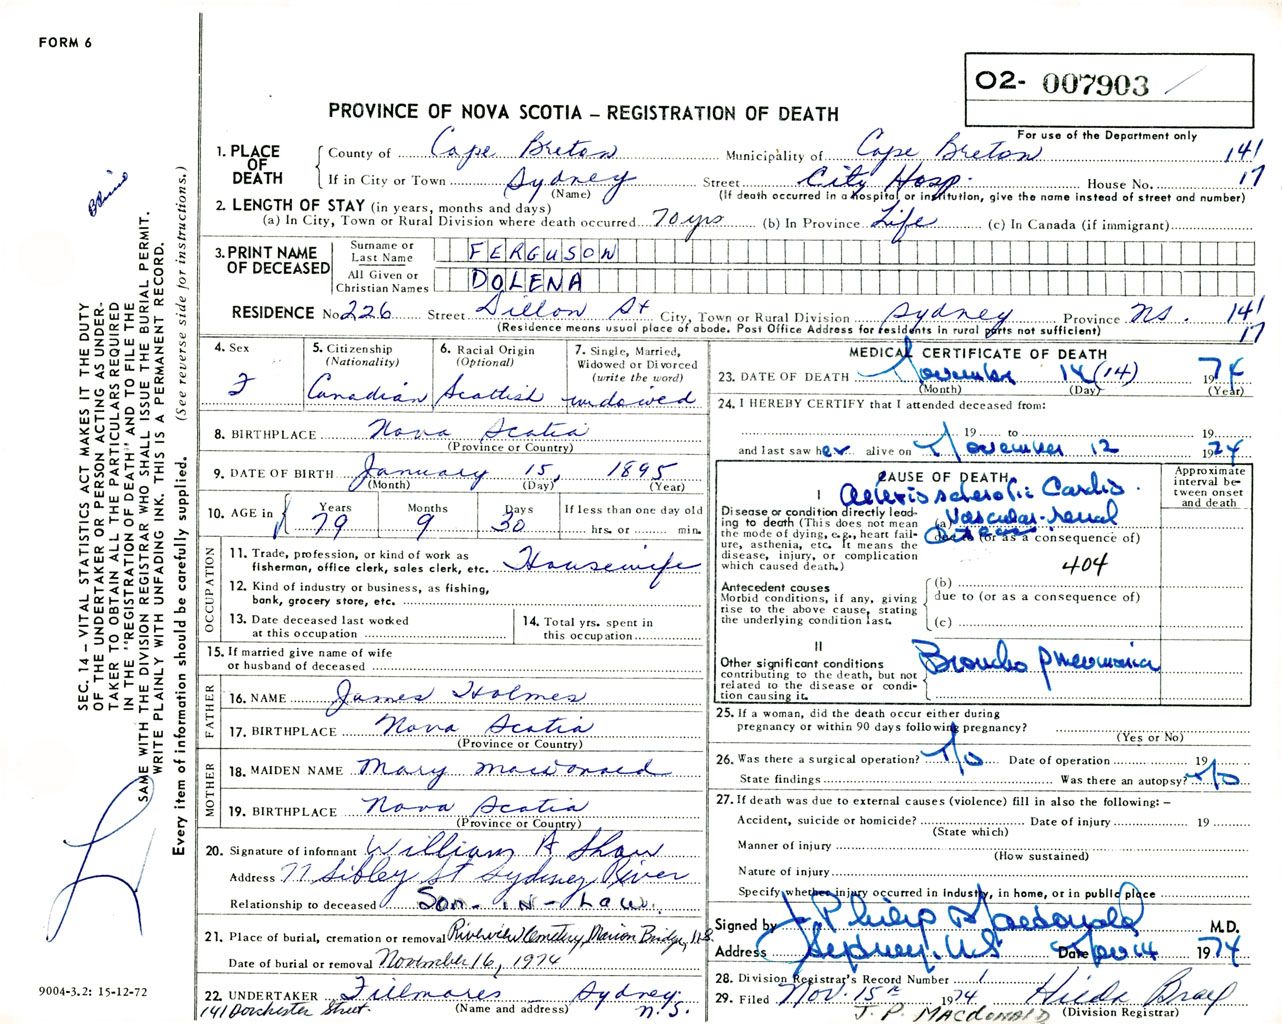 FORM 6
O2- 007903
PROVINCE OF NOVA SCOTIA – REGISTRATION OF DEATH
For use of the Department only
1. PLACE OF DEATH
County of Cape Breton Municipality of Cape Breton 141
If in City or Town Sydney Street City Hosp. House No. 17
(Name) (If death occurred in a hospital or institution, give the name instead of street and number)
2. LENGTH OF STAY (in years, months and days)
(a) In City, Town or Rural Division where death occurred 70 yrs (b) In Province Life (c) In Canada (if immigrant)
3. PRINT NAME OF DECEASED
Surname or Last Name FERGUSON
All Given or Christian Names DOLENA
RESIDENCE No. 226 Street Dillon St City, Town or Rural Division Sydney Province NS. 141
(Residence means usual place of abode. Post Office Address for residents in rural parts not sufficient) 17
4. Sex
F
5. Citizenship
(Nationality)
Canadian
6. Racial Origin
(Optional)
Scottish
7. Single, Married,
Widowed or Divorced
(write the word)
widowed
8. BIRTHPLACE Nova Scotia
(Province or Country)
9. DATE OF BIRTH January 15, 1895
(Month) (Day) (Year)
10. AGE in Years Months Days If less than one day old
79 9 30 hrs. or min.
OCCUPATION
11. Trade, profession, or kind of work as
fisherman, office clerk, sales clerk, etc. Housewife
12. Kind of industry or business, as fishing,
bank, grocery store, etc.
13. Date deceased last worked
at this occupation
14. Total yrs. spent in
this occupation
15. If married give name of wife
or husband of deceased
FATHER
16. NAME James Holmes
17. BIRTHPLACE Nova Scotia
(Province or Country)
MOTHER
18. MAIDEN NAME Mary MacDonald
19. BIRTHPLACE Nova Scotia
(Province or Country)
20. Signature of informant William A Shaw
Address 77 Sibley St Sydney River
Relationship to deceased Son-in-Law
21. Place of burial, cremation or removal Riverview Cemetery, Marion Bridge, N.S.
Date of burial or removal November 16, 1974
22. UNDERTAKER Fillmores - Sydney N.S.
141 Dorchester Street. (Name and address)
MEDICAL CERTIFICATE OF DEATH
23. DATE OF DEATH November 14 (14) 1974
(Month) (Day) (Year)
24. I HEREBY CERTIFY that I attended deceased from:
19 to 19
and last saw her alive on November 12 1974
CAUSE OF DEATH
Approximate interval between onset and death
I
Disease or condition directly leading to death (This does not mean the mode of dying, e.g., heart failure, asthenia, etc. It means the disease, injury, or complication which caused death.)
Arteriosclerotic Cardio
(a) Vascular-renal
disease
due to (or as a consequence of)
404
Antecedent causes
Morbid conditions, if any, giving rise to the above cause, stating the underlying condition last.
(b)
due to (or as a consequence of)
(c)
II
Other significant conditions
contributing to the death, but not related to the disease or condition causing it.
Broncho pneumonia
25. If a woman, did the death occur either during
pregnancy or within 90 days following pregnancy?
(Yes or No)
26. Was there a surgical operation? No Date of operation 19
State findings Was there an autopsy? No
27. If death was due to external causes (violence) fill in also the following: –
Accident, suicide or homicide? Date of injury 19
(State which)
Manner of injury
(How sustained)
Nature of injury
Specify whether injury occurred in Industry, in home, or in public place
Signed by J. Philip Macdonald M.D.
Address Sydney, N.S Date Nov 14 1974
28. Division Registrar's Record Number 1
29. Filed Nov. 15th 1974 Hilda
J. P. MACDONALD (Division Registrar)
SEC. 14 – VITAL STATISTICS ACT MAKES IT THE DUTY
OF THE UNDERTAKER OR PERSON ACTING AS UNDER-
TAKER TO OBTAIN ALL THE PARTICULARS REQUIRED
IN THE "REGISTRATION OF DEATH" AND TO FILE THE
SAME WITH THE DIVISION REGISTRAR WHO SHALL ISSUE THE BURIAL PERMIT.
WRITE PLAINLY WITH UNFADING INK. THIS IS A PERMANENT RECORD.
Every item of information should be carefully supplied. (See reverse side for instructions.)
9004-3.2: 15-12-72